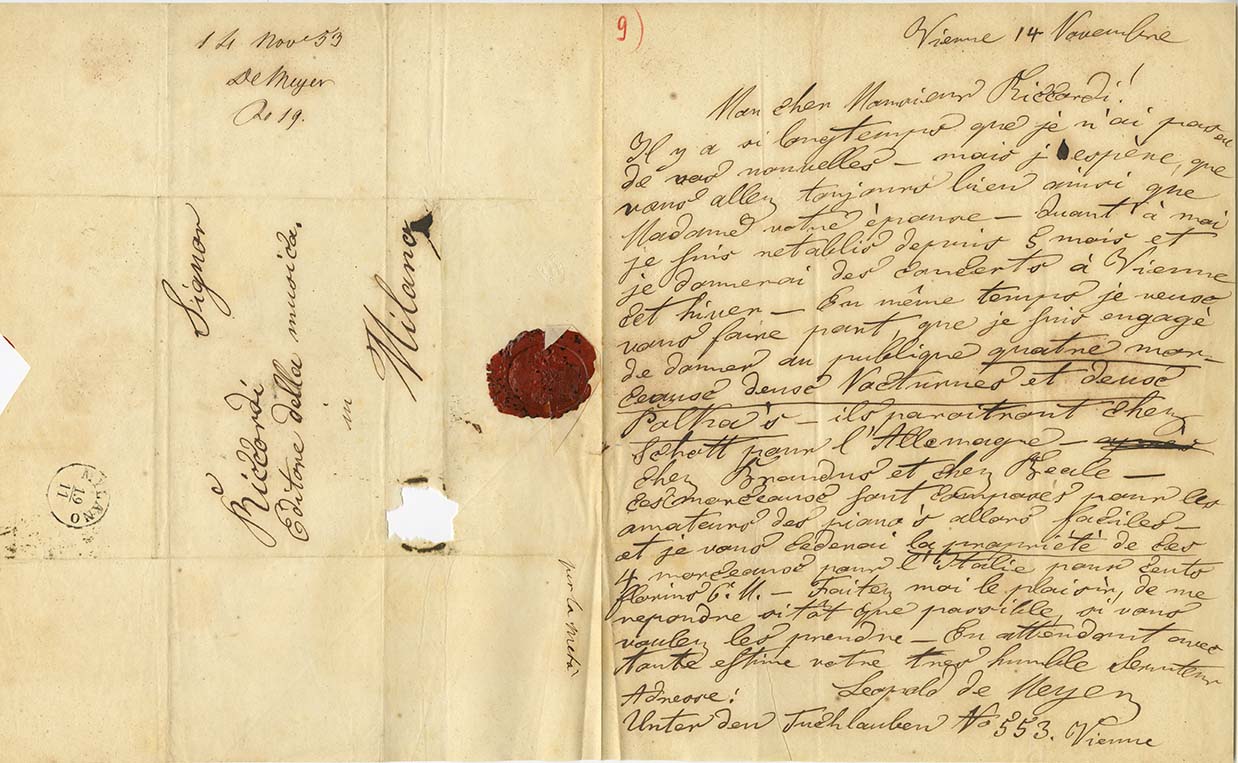 14 Nove 53
De Meyer
Ro 19.
Signor
Riccordi
Editore della musica.
in
Milano
MILANO
19
11
per la metà
9)
Vienne 14 Novembre
Mon cher Monsieur Riccordi!
Il y a si longtemps que je n'ai pas eu
de vos nouvelles – mais j'espère, que
vous allez toujours bien ainsi que
Madame votre épouse – Quant à moi
je suis retablis depuis 5 mois et
je donnerai des Concerts à Vienne
cet hiver – En même temps je veux
vous faire part, que je suis engagé
de donner au publique quatre mor-
ceaux deux Nocturnes et deux
Polka's – ils paraitront chez
Schott pour l'Allemagne –
chez Brandus et chez Beale –
ces morceaux sont composés pour les
amateurs des piano's allors faciles –
et je vous cederai la propriété de ces
4 morceaux pour l'Italie pour cents
florins C. M. – Faitez moi le plaisir, de me
repondre sitôt que possible, si vous
voulez les prendre – En attendant avec
toute estime votre tres humble serviteur
Leopold de Meyer
Adresse:
Unter den Tuchlauben No 553. Vienne